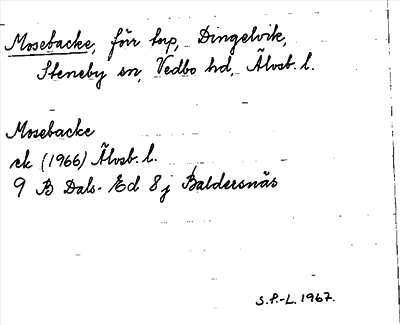 Mosebacke, förr torp, Dingelvik,
Steneby sn, Vedbo hd, Älvsb. l.
Mosebacke
ek (1966) Älvsb. l.
9 B Dals-Ed 8 j Baldersnäs
S.P.-L. 1967.